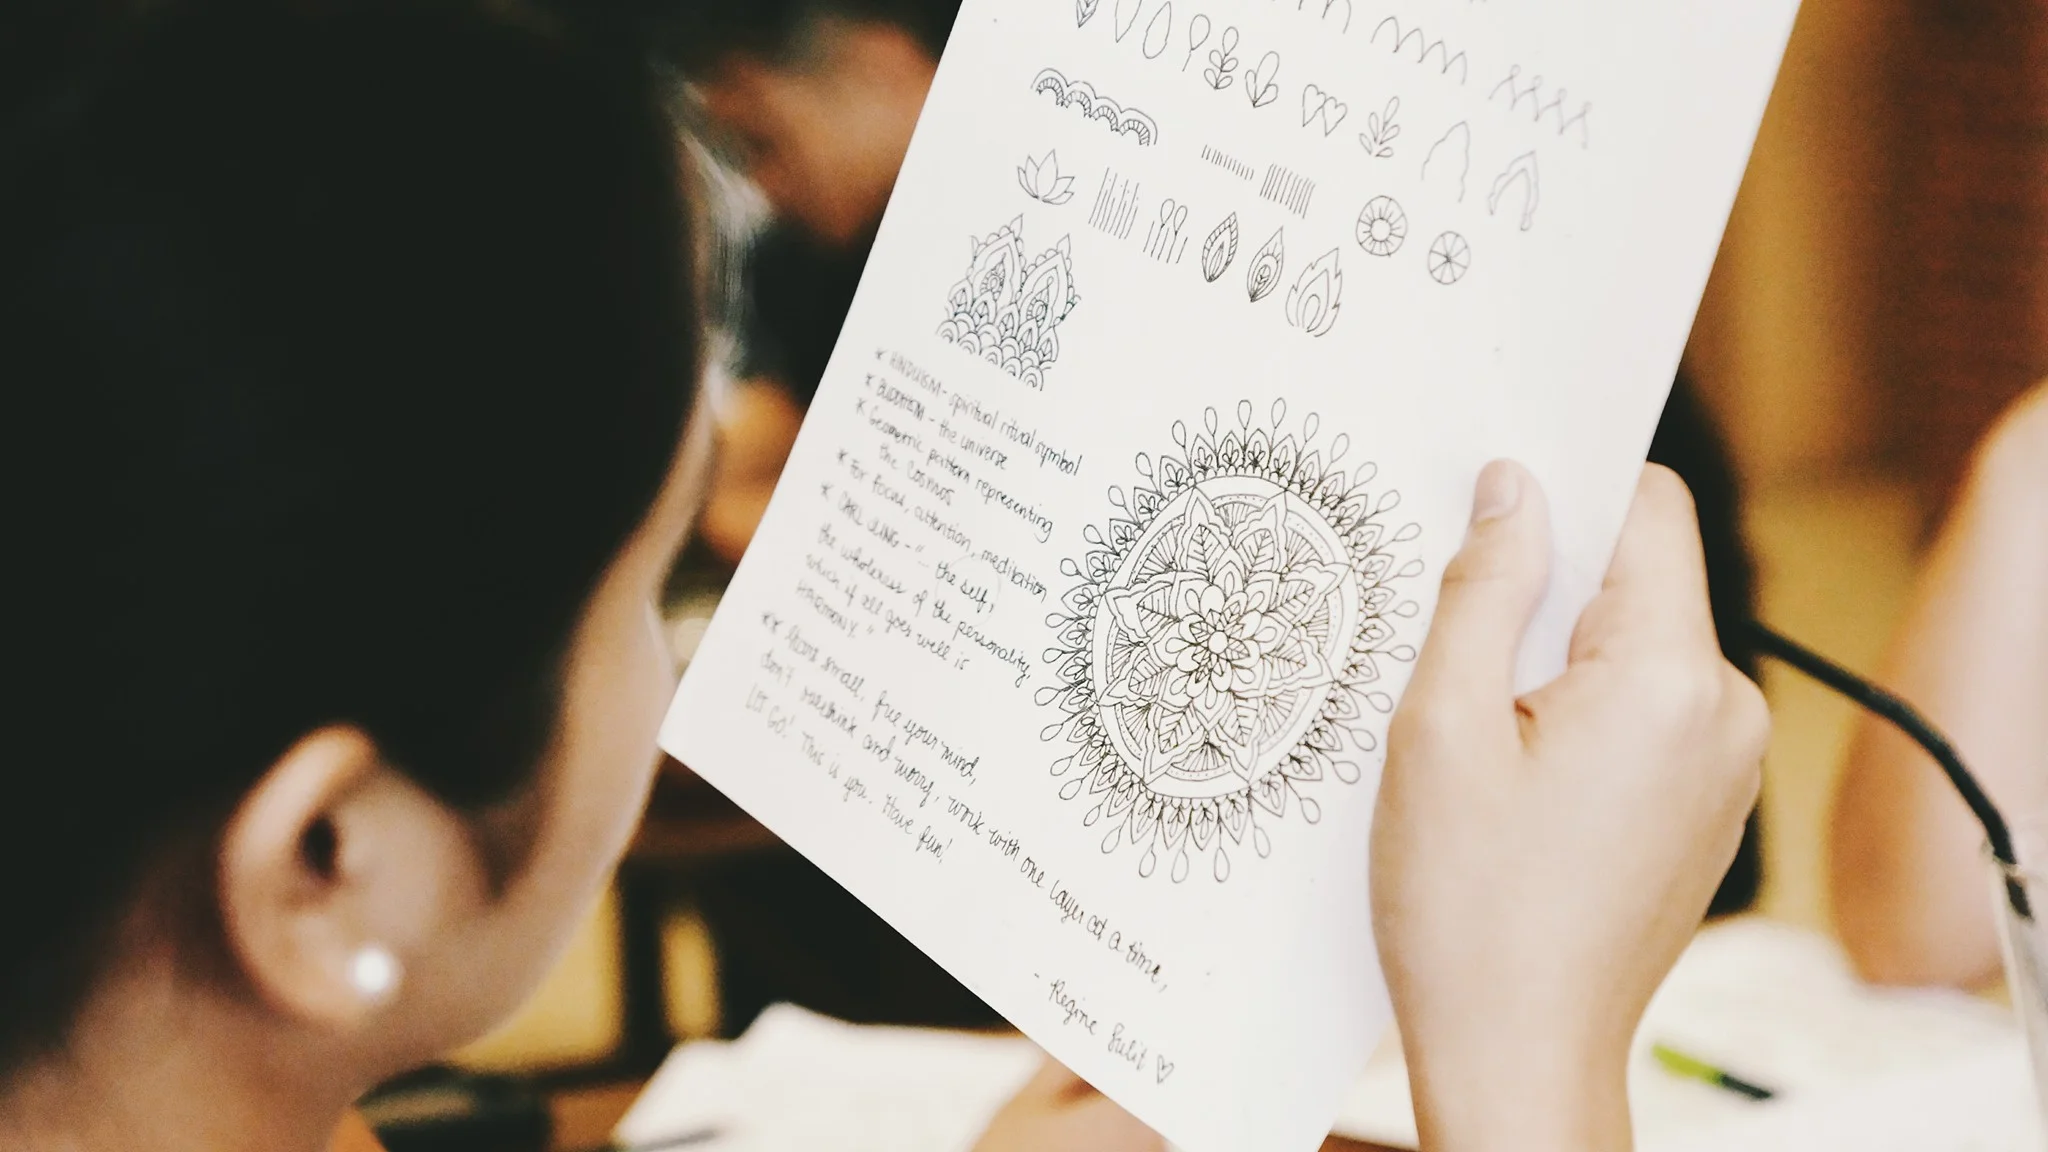 * HINDUISM - spiritual ritual symbol
* BUDDHISM - the universe
* Geometric pattern representing
the Cosmos
* For focus, attention, meditation
* CARL JUNG - "... the self,
the wholeness of the personality,
which if all goes well is
HARMONY."
** Start small, free your mind,
don't overthink and worry, work with one layer at a time,
LET GO! This is you. Have fun!
- Regine Sulit ♡